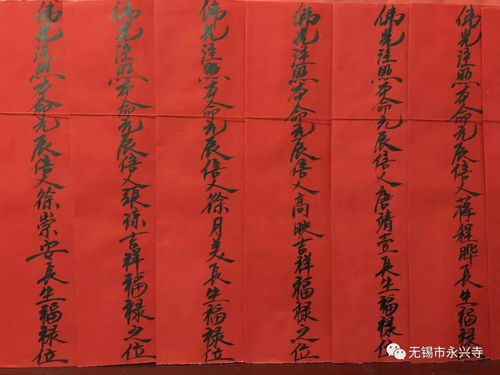 佛光注照本命元辰信人蒋程晔長生福禄位
佛光注照本命元辰信人唐靖壹長生福禄位
佛光注照本命元辰信人高映吉祥福禄之位
佛光注照本命元辰信人徐月美長生福禄位
佛光注照本命元辰信人張琼吉祥福禄之位
佛光注照本命元辰信人徐崇安長生福禄位
无锡市永兴寺